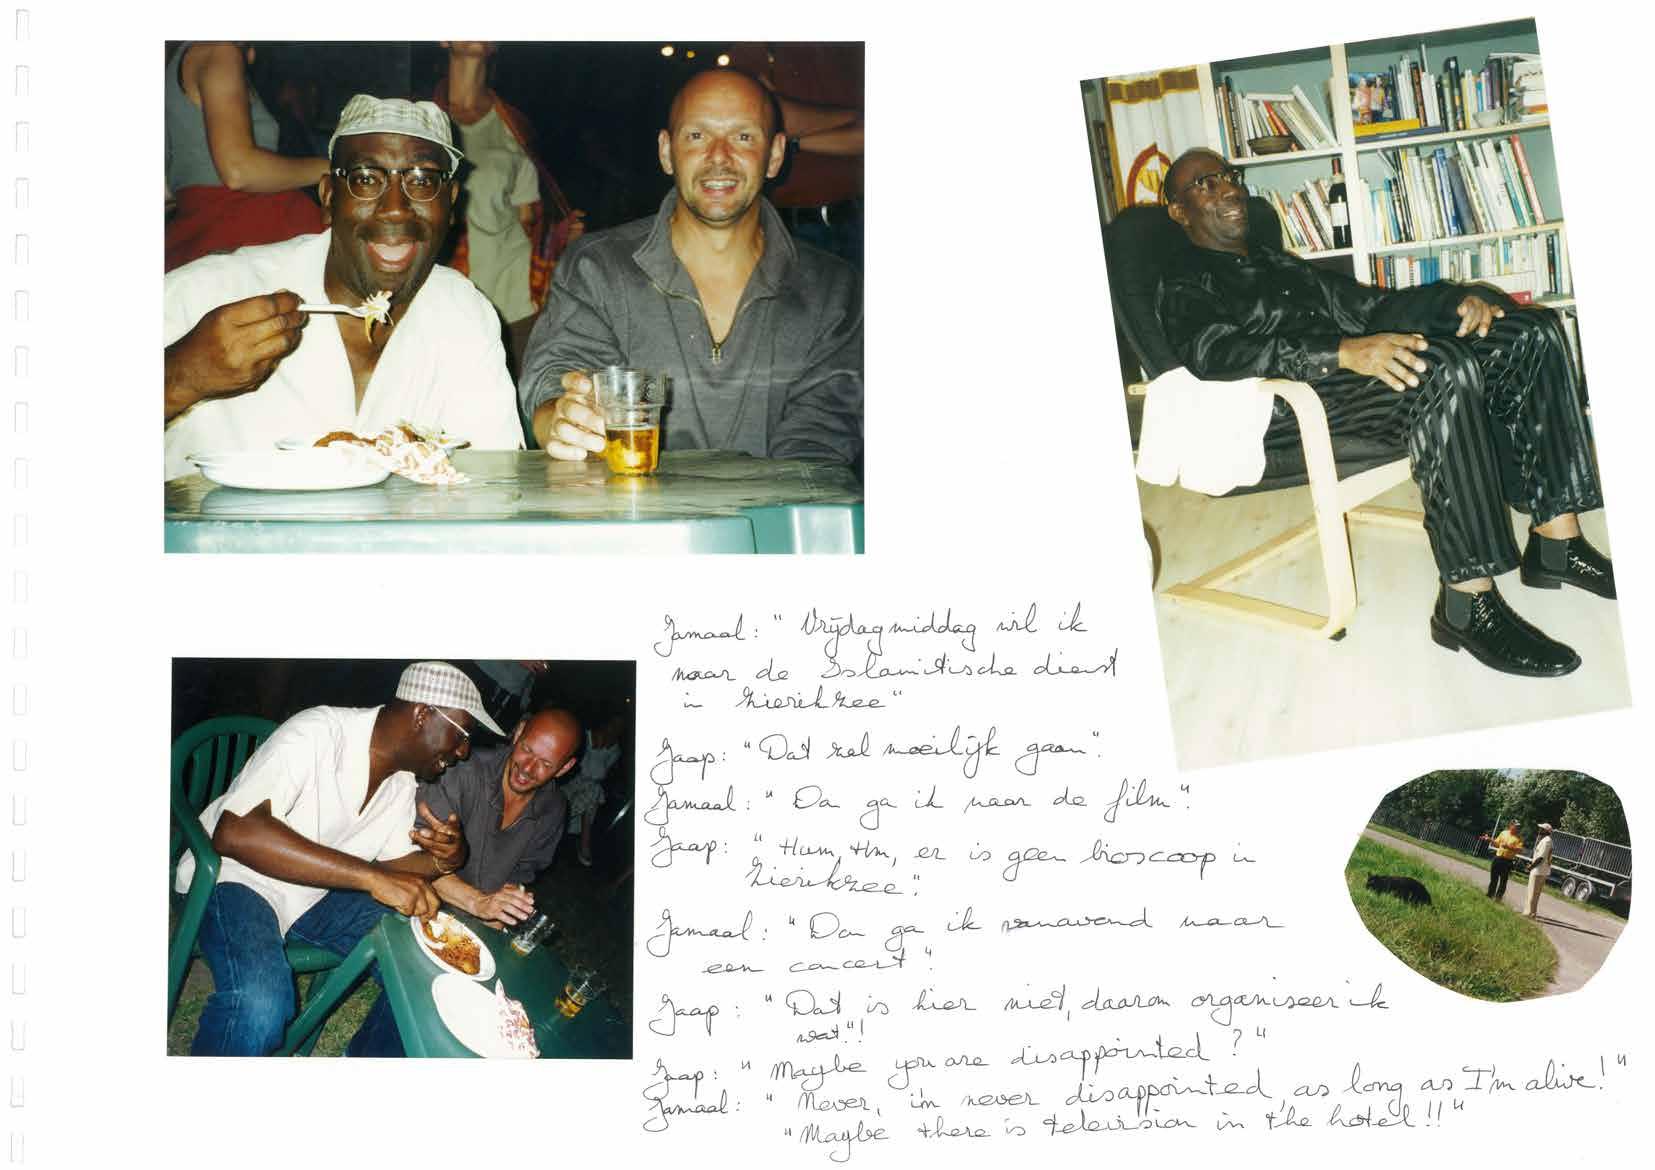 Jamaal: "Vrijdagmiddag wil ik
naar de Islamitische dienst
in Zierikzee"
Jaap: "Dat zal moeilijk gaan".
Jamaal: "Dan ga ik naar de film".
Jaap: "Hum, Hm, er is geen bioscoop in
Zierikzee".
Jamaal: "Dan ga ik vanavond naar
een concert".
Jaap: "Dat is hier niet, daarom organiseer ik
wat"!
Jaap: "Maybe you are disappointed?"
Jamaal: "Never, i'm never disappointed, as long as I'm alive!"
"Maybe there is television in the hotel!!"